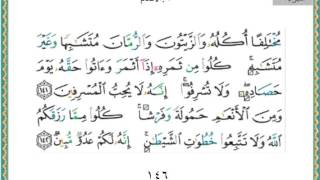 مُخْتَلِفًا أُكُلُهُۥ وَٱلزَّيْتُونَ وَٱلرُّمَّانَ مُتَشَٰبِهًا وَغَيْرَ
مُتَشَٰبِهٍۚ كُلُوا۟ مِن ثَمَرِهِۦٓ إِذَآ أَثْمَرَ وَءَاتُوا۟ حَقَّهُۥ يَوْمَ
حَصَادِهِۦۖ وَلَا تُسْرِفُوٓا۟ۚ إِنَّهُۥ لَا يُحِبُّ ٱلْمُسْرِفِينَ ١٤١
وَمِنَ ٱلْأَنْعَٰمِ حَمُولَةً وَفَرْشًاۚ كُلُوا۟ مِمَّا رَزَقَكُمُ
ٱللَّهُ وَلَا تَتَّبِعُوا۟ خُطُوَٰتِ ٱلشَّيْطَٰنِۚ إِنَّهُۥ لَكُمْ عَدُوٌّ مُّبِينٌ ١٤٢
١٤٦